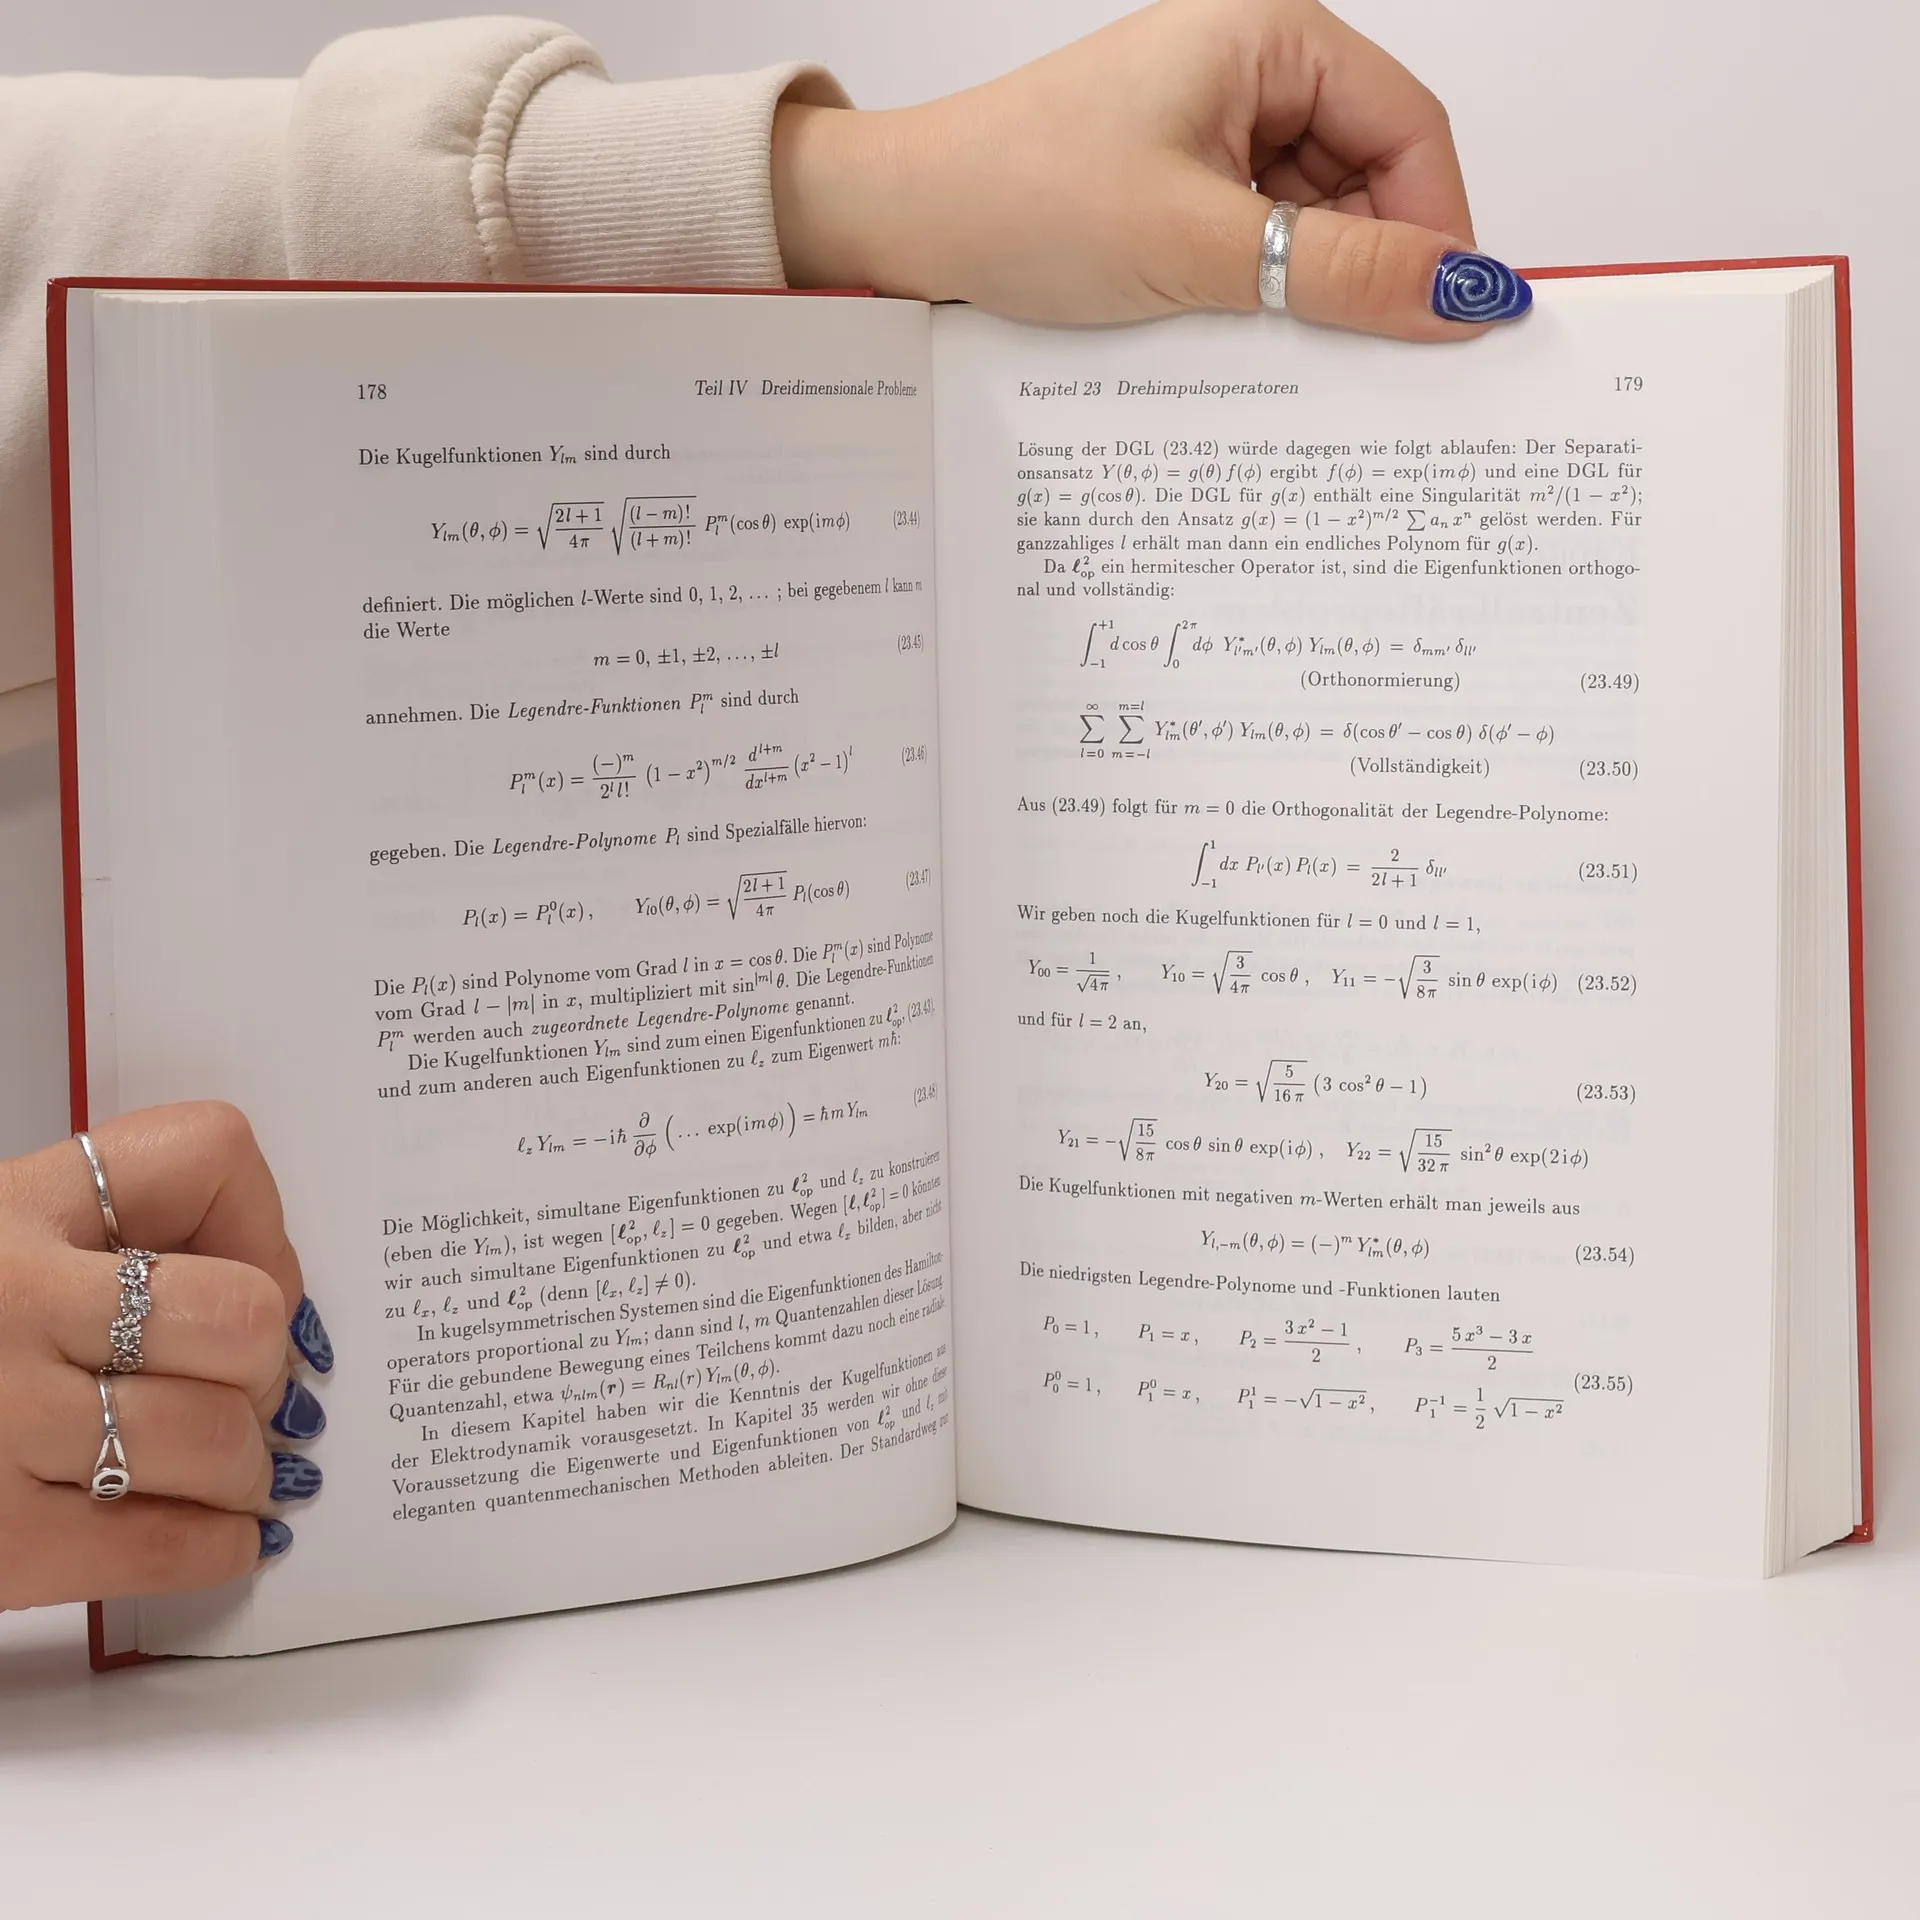 178 Teil IV Dreidimensionale Probleme
Die Kugelfunktionen Y_{lm} sind durch
Y_{lm}(θ, ϕ) = √((2l + 1)/(4π)) √((l − m)!/(l + m)!) P_l^m(cos θ) exp(imϕ) (23.44)
definiert. Die möglichen l-Werte sind 0, 1, 2, ... ; bei gegebenem l kann m
die Werte
m = 0, ±1, ±2, ..., ±l (23.45)
annehmen. Die Legendre-Funktionen P_l^m sind durch
P_l^m(x) = ((−)^m/(2^l l!)) (1 − x²)^{m/2} (d^{l+m}/dx^{l+m}) (x² − 1)^l (23.46)
gegeben. Die Legendre-Polynome P_l sind Spezialfälle hiervon:
P_l(x) = P_l^0(x), Y_{l0}(θ, ϕ) = √((2l + 1)/(4π)) P_l(cos θ) (23.47)
Die P_l(x) sind Polynome vom Grad l in x = cos θ. Die P_l^m(x) sind Polynome
vom Grad l − |m| in x, multipliziert mit sin^{|m|} θ. Die Legendre-Funktionen
P_l^m werden auch zugeordnete Legendre-Polynome genannt.
Die Kugelfunktionen Y_{lm} sind zum einen Eigenfunktionen zu ℓ²_{op}, (23.43),
und zum anderen auch Eigenfunktionen zu ℓ_z zum Eigenwert mħ:
ℓ_z Y_{lm} = −iħ ∂/∂ϕ (... exp(imϕ)) = ħm Y_{lm} (23.48)
Die Möglichkeit, simultane Eigenfunktionen zu ℓ²_{op} und ℓ_z zu konstruieren
(eben die Y_{lm}), ist wegen [ℓ²_{op}, ℓ_z] = 0 gegeben. Wegen [ℓ, ℓ²_{op}] = 0 könnten
wir auch simultane Eigenfunktionen zu ℓ²_{op} und etwa ℓ_x bilden, aber nicht
zu ℓ_x, ℓ_z und ℓ²_{op} (denn [ℓ_x, ℓ_z] ≠ 0).
In kugelsymmetrischen Systemen sind die Eigenfunktionen des Hamilton-
operators proportional zu Y_{lm}; dann sind l, m Quantenzahlen dieser Lösung.
Für die gebundene Bewegung eines Teilchens kommt dazu noch eine radiale
Quantenzahl, etwa ψ_{nlm}(r) = R_{nl}(r) Y_{lm}(θ, ϕ).
In diesem Kapitel haben wir die Kenntnis der Kugelfunktionen aus
der Elektrodynamik vorausgesetzt. In Kapitel 35 werden wir ohne diese
Voraussetzung die Eigenwerte und Eigenfunktionen von ℓ²_{op} und ℓ_z mit
eleganten quantenmechanischen Methoden ableiten. Der Standardweg zur
Kapitel 23 Drehimpulsoperatoren 179
Lösung der DGL (23.42) würde dagegen wie folgt ablaufen: Der Separati-
onsansatz Y(θ, ϕ) = g(θ) f(ϕ) ergibt f(ϕ) = exp(imϕ) und eine DGL für
g(x) = g(cos θ). Die DGL für g(x) enthält eine Singularität m²/(1 − x²);
sie kann durch den Ansatz g(x) = (1 − x²)^{m/2} ∑ a_n x^n gelöst werden. Für
ganzzahliges l erhält man dann ein endliches Polynom für g(x).
Da ℓ²_{op} ein hermitescher Operator ist, sind die Eigenfunktionen orthogo-
nal und vollständig:
∫_{−1}^{+1} d cos θ ∫_0^{2π} dϕ Y*_{l′m′}(θ, ϕ) Y_{lm}(θ, ϕ) = δ_{mm′} δ_{ll′}
(Orthonormierung) (23.49)
∑_{l=0}^{∞} ∑_{m=−l}^{m=l} Y*_{lm}(θ′, ϕ′) Y_{lm}(θ, ϕ) = δ(cos θ′ − cos θ) δ(ϕ′ − ϕ)
(Vollständigkeit) (23.50)
Aus (23.49) folgt für m = 0 die Orthogonalität der Legendre-Polynome:
∫_{−1}^{1} dx P_{l′}(x) P_l(x) = 2/(2l + 1) δ_{ll′} (23.51)
Wir geben noch die Kugelfunktionen für l = 0 und l = 1,
Y_{00} = 1/√(4π), Y_{10} = √(3/(4π)) cos θ, Y_{11} = −√(3/(8π)) sin θ exp(iϕ) (23.52)
und für l = 2 an,
Y_{20} = √(5/(16π)) (3 cos² θ − 1) (23.53)
Y_{21} = −√(15/(8π)) cos θ sin θ exp(iϕ), Y_{22} = √(15/(32π)) sin² θ exp(2iϕ)
Die Kugelfunktionen mit negativen m-Werten erhält man jeweils aus
Y_{l,−m}(θ, ϕ) = (−)^m Y*_{lm}(θ, ϕ) (23.54)
Die niedrigsten Legendre-Polynome und -Funktionen lauten
P_0 = 1, P_1 = x, P_2 = (3x² − 1)/2, P_3 = (5x³ − 3x)/2
(23.55)
P_0^0 = 1, P_1^0 = x, P_1^1 = −√(1 − x²), P_1^{−1} = 1/2 √(1 − x²)